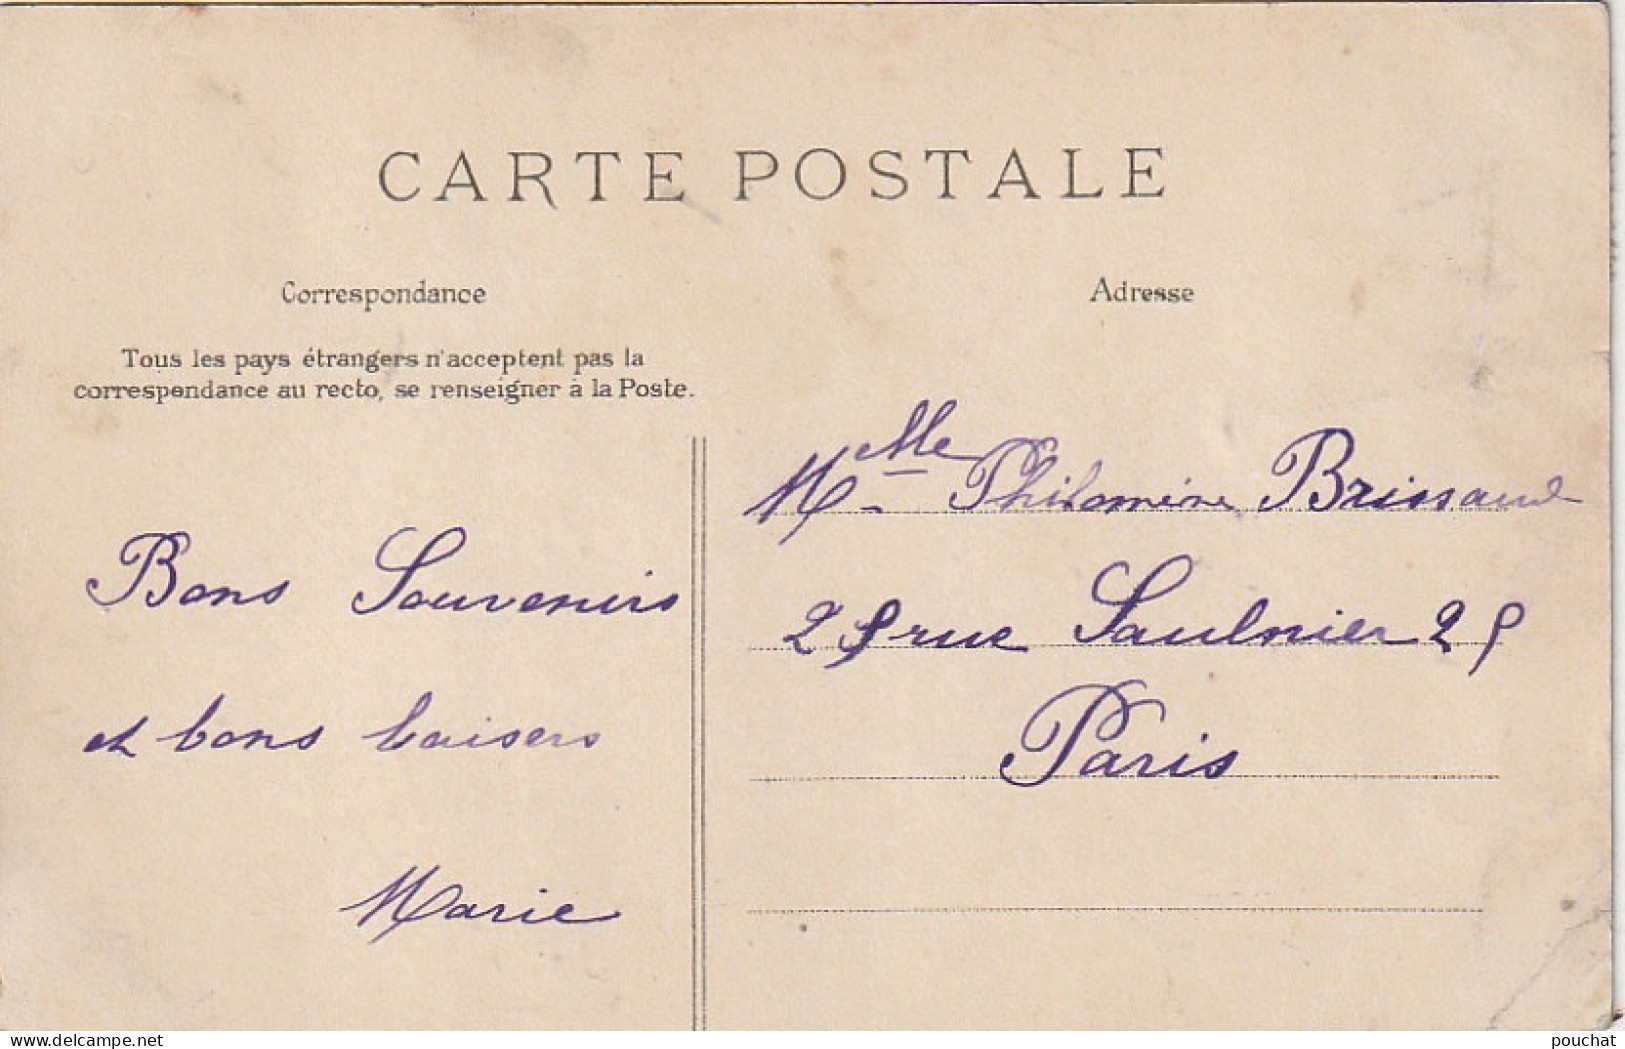 CARTE POSTALE
Correspondance
Tous les pays étrangers n'acceptent pas la
correspondance au recto, se renseigner à la Poste.
Bons Souvenirs
et bons baisers
Marie
Adresse
Melle Philomène Brissaud
25 rue Saulnier 25
Paris
delcampe.net
pouchat